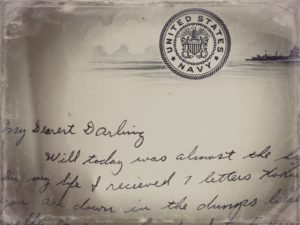 UNITED STATES NAVY
My Dearest Darling
Will today was almost the
in my life I recieved 7 letters today
you are down in the dumps